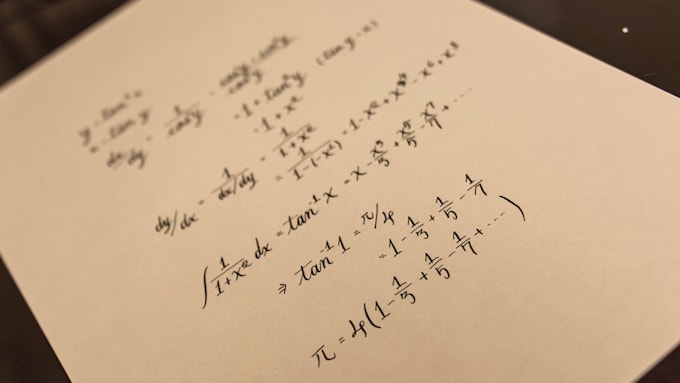 y = tan⁻¹x
x = tan y
dx/dy = 1/cos²y = (cos²y + sin²y)/cos²y
= 1 + tan²y (tan y = x)
= 1 + x²
dy/dx = 1/(dx/dy) = 1/(1+x²)
= 1/(1-(-x²)) = 1 - x² + x⁴ - x⁶ + x⁸
∫ 1/(1+x²) dx = tan⁻¹ x = x - x³/3 + x⁵/5 - x⁷/7 + ...
⇒ tan⁻¹ 1 = π/4
= 1 - 1/3 + 1/5 - 1/7
π = 4(1 - 1/3 + 1/5 - 1/7 + ...)